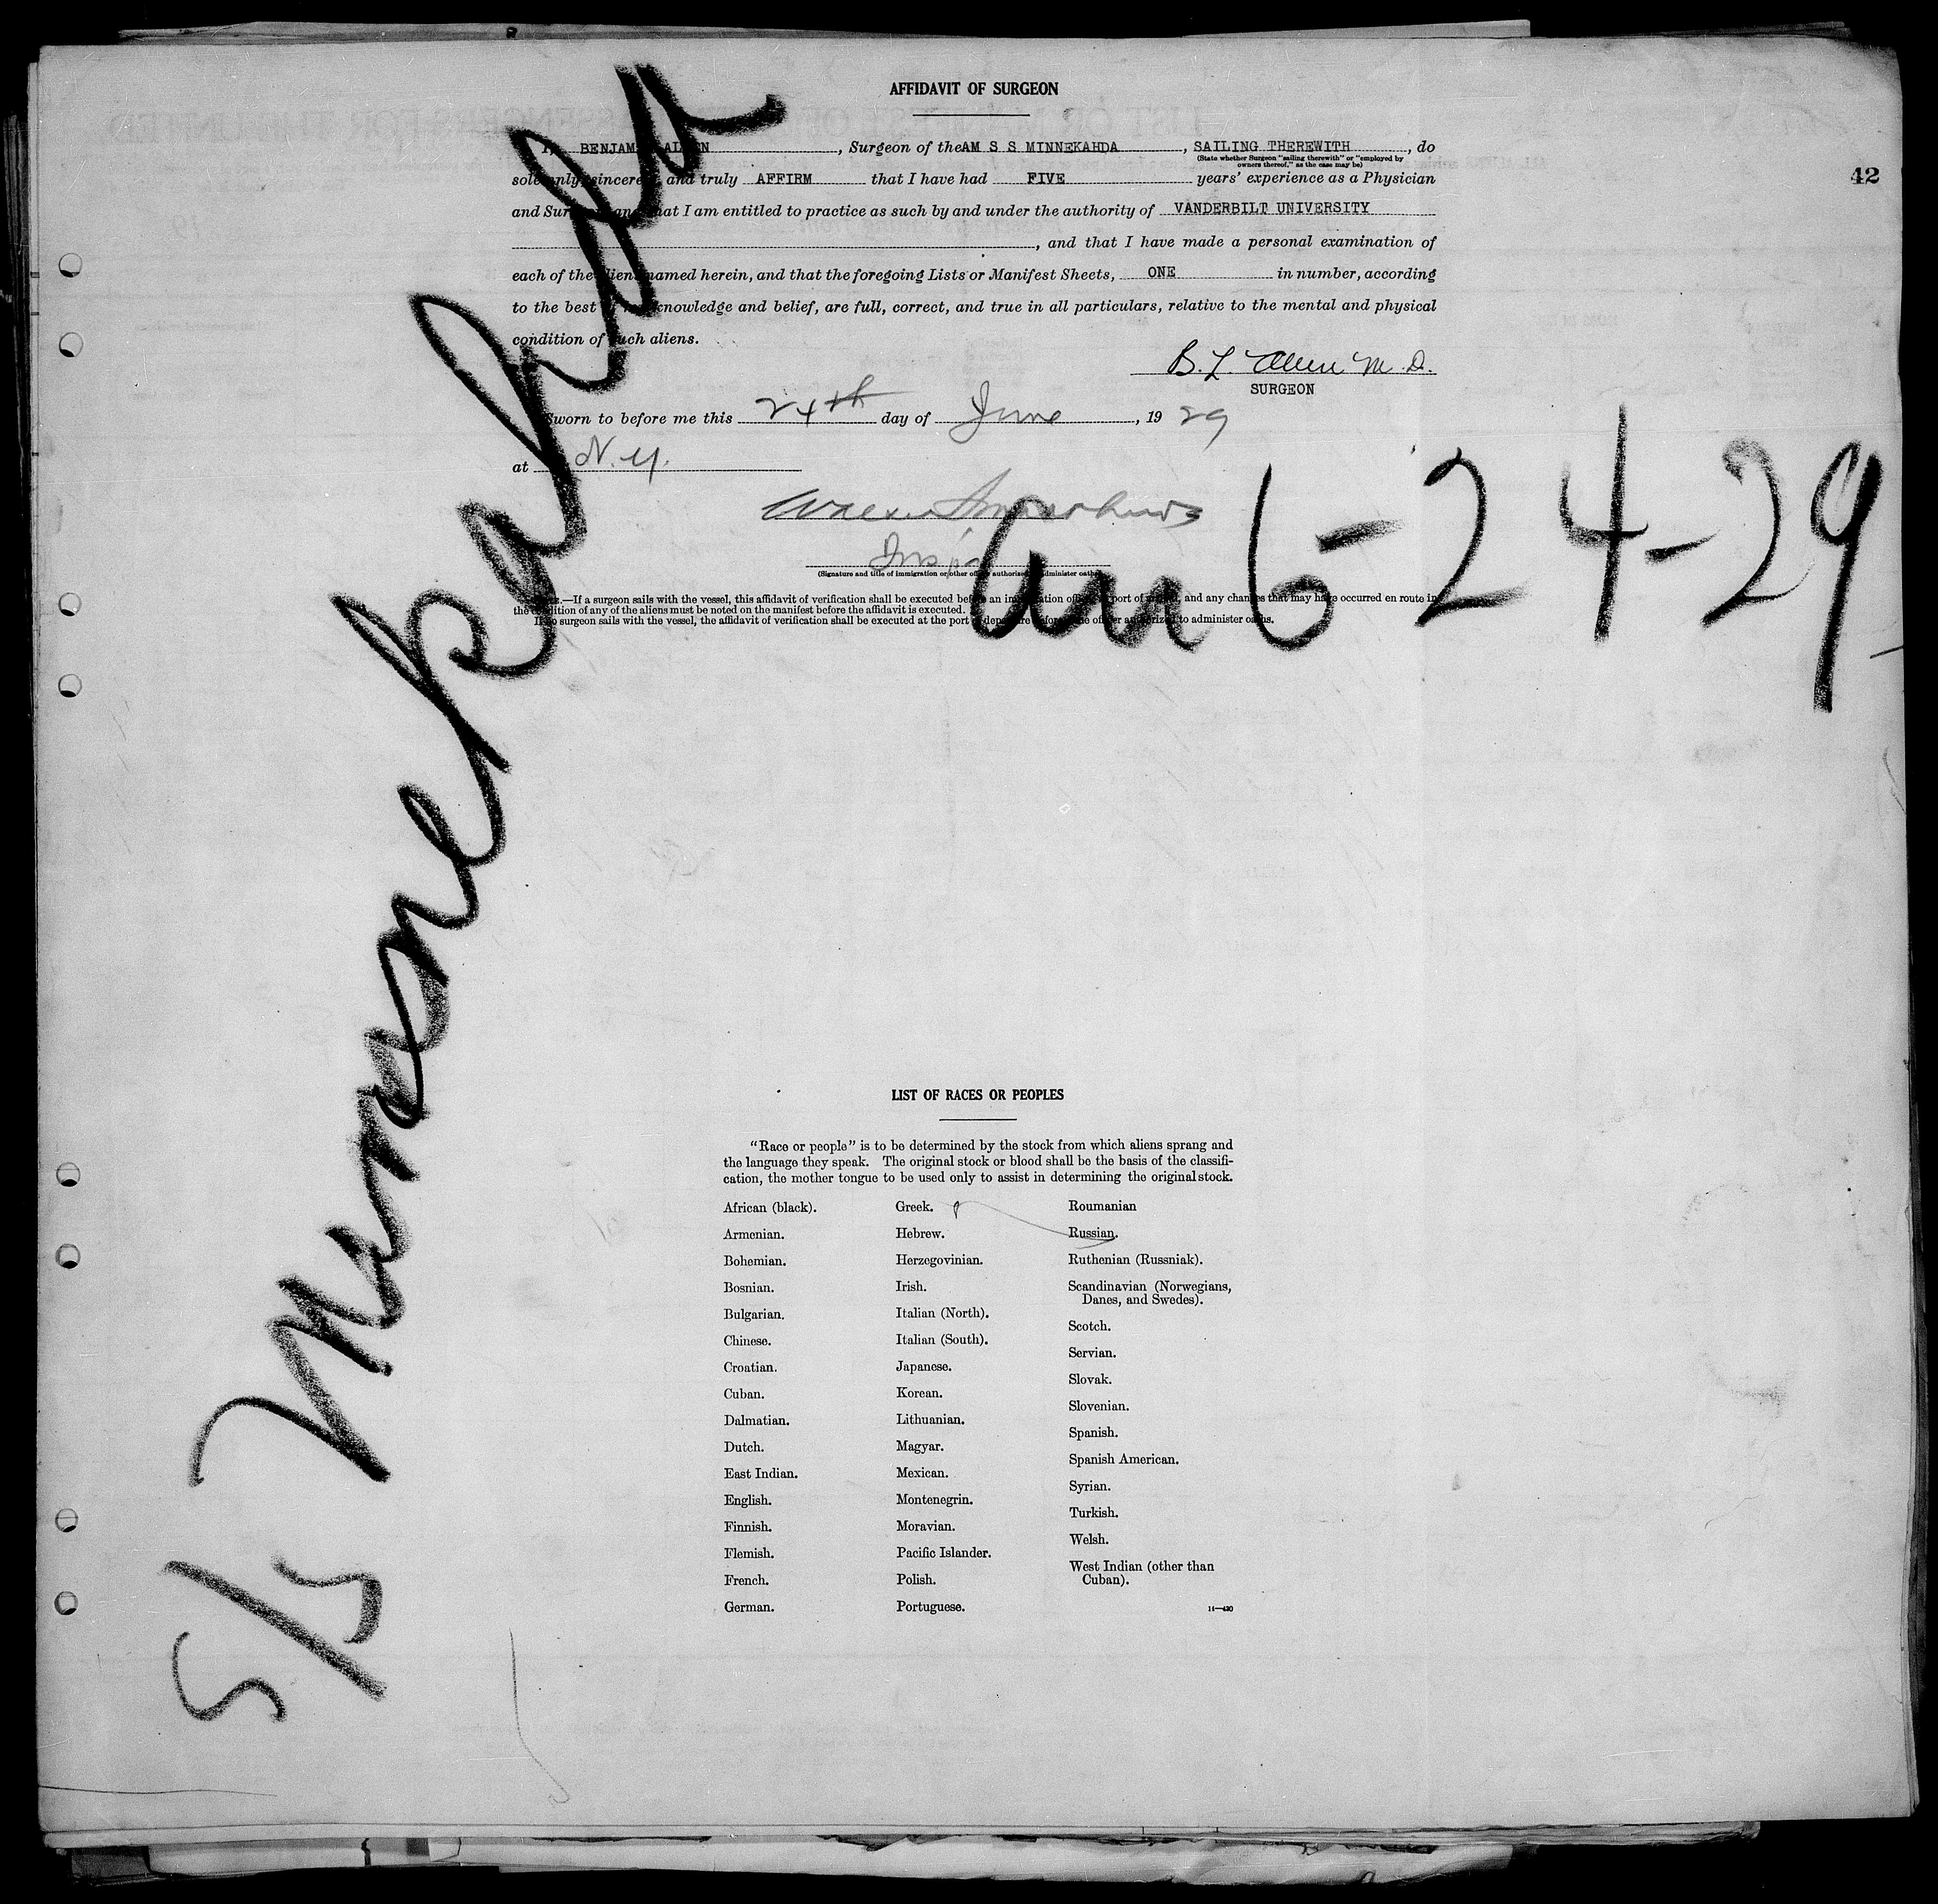 AFFIDAVIT OF SURGEON
I, BENJAM ALLEN, Surgeon of the AM S S MINNEKAHDA, SAILING THEREWITH, do
(State whether Surgeon "sailing therewith" or "employed by
owners thereof," as the case may be)
42
solemnly, sincerely, and truly AFFIRM that I have had FIVE years' experience as a Physician
and Surgeon and that I am entitled to practice as such by and under the authority of VANDERBILT UNIVERSITY
, and that I have made a personal examination of
each of the aliens named herein, and that the foregoing Lists or Manifest Sheets, ONE in number, according
to the best of my knowledge and belief, are full, correct, and true in all particulars, relative to the mental and physical
condition of such aliens.
B. L. Allen M. D.
SURGEON
Sworn to before me this 24th day of June, 19 29
at N.Y.
(Signature and title of immigration or other officer authorized to administer oaths)
NOTE.—If a surgeon sails with the vessel, this affidavit of verification shall be executed before an immigration officer at port of arrival, and any changes that may have occurred en route in
the condition of any of the aliens must be noted on the manifest before the affidavit is executed.
If no surgeon sails with the vessel, the affidavit of verification shall be executed at the port of departure before some officer authorized to administer oaths.
S/S Minnekahda
6-24-29
LIST OF RACES OR PEOPLES
"Race or people" is to be determined by the stock from which aliens sprang and
the language they speak. The original stock or blood shall be the basis of the classifi-
cation, the mother tongue to be used only to assist in determining the original stock.
African (black).
Armenian.
Bohemian.
Bosnian.
Bulgarian.
Chinese.
Croatian.
Cuban.
Dalmatian.
Dutch.
East Indian.
English.
Finnish.
Flemish.
French.
German.
Greek.
Hebrew.
Herzegovinian.
Irish.
Italian (North).
Italian (South).
Japanese.
Korean.
Lithuanian.
Magyar.
Mexican.
Montenegrin.
Moravian.
Pacific Islander.
Polish.
Portuguese.
Roumanian
Russian.
Ruthenian (Russniak).
Scandinavian (Norwegians,
Danes, and Swedes).
Scotch.
Servian.
Slovak.
Slovenian.
Spanish.
Spanish American.
Syrian.
Turkish.
Welsh.
West Indian (other than
Cuban).
14—430